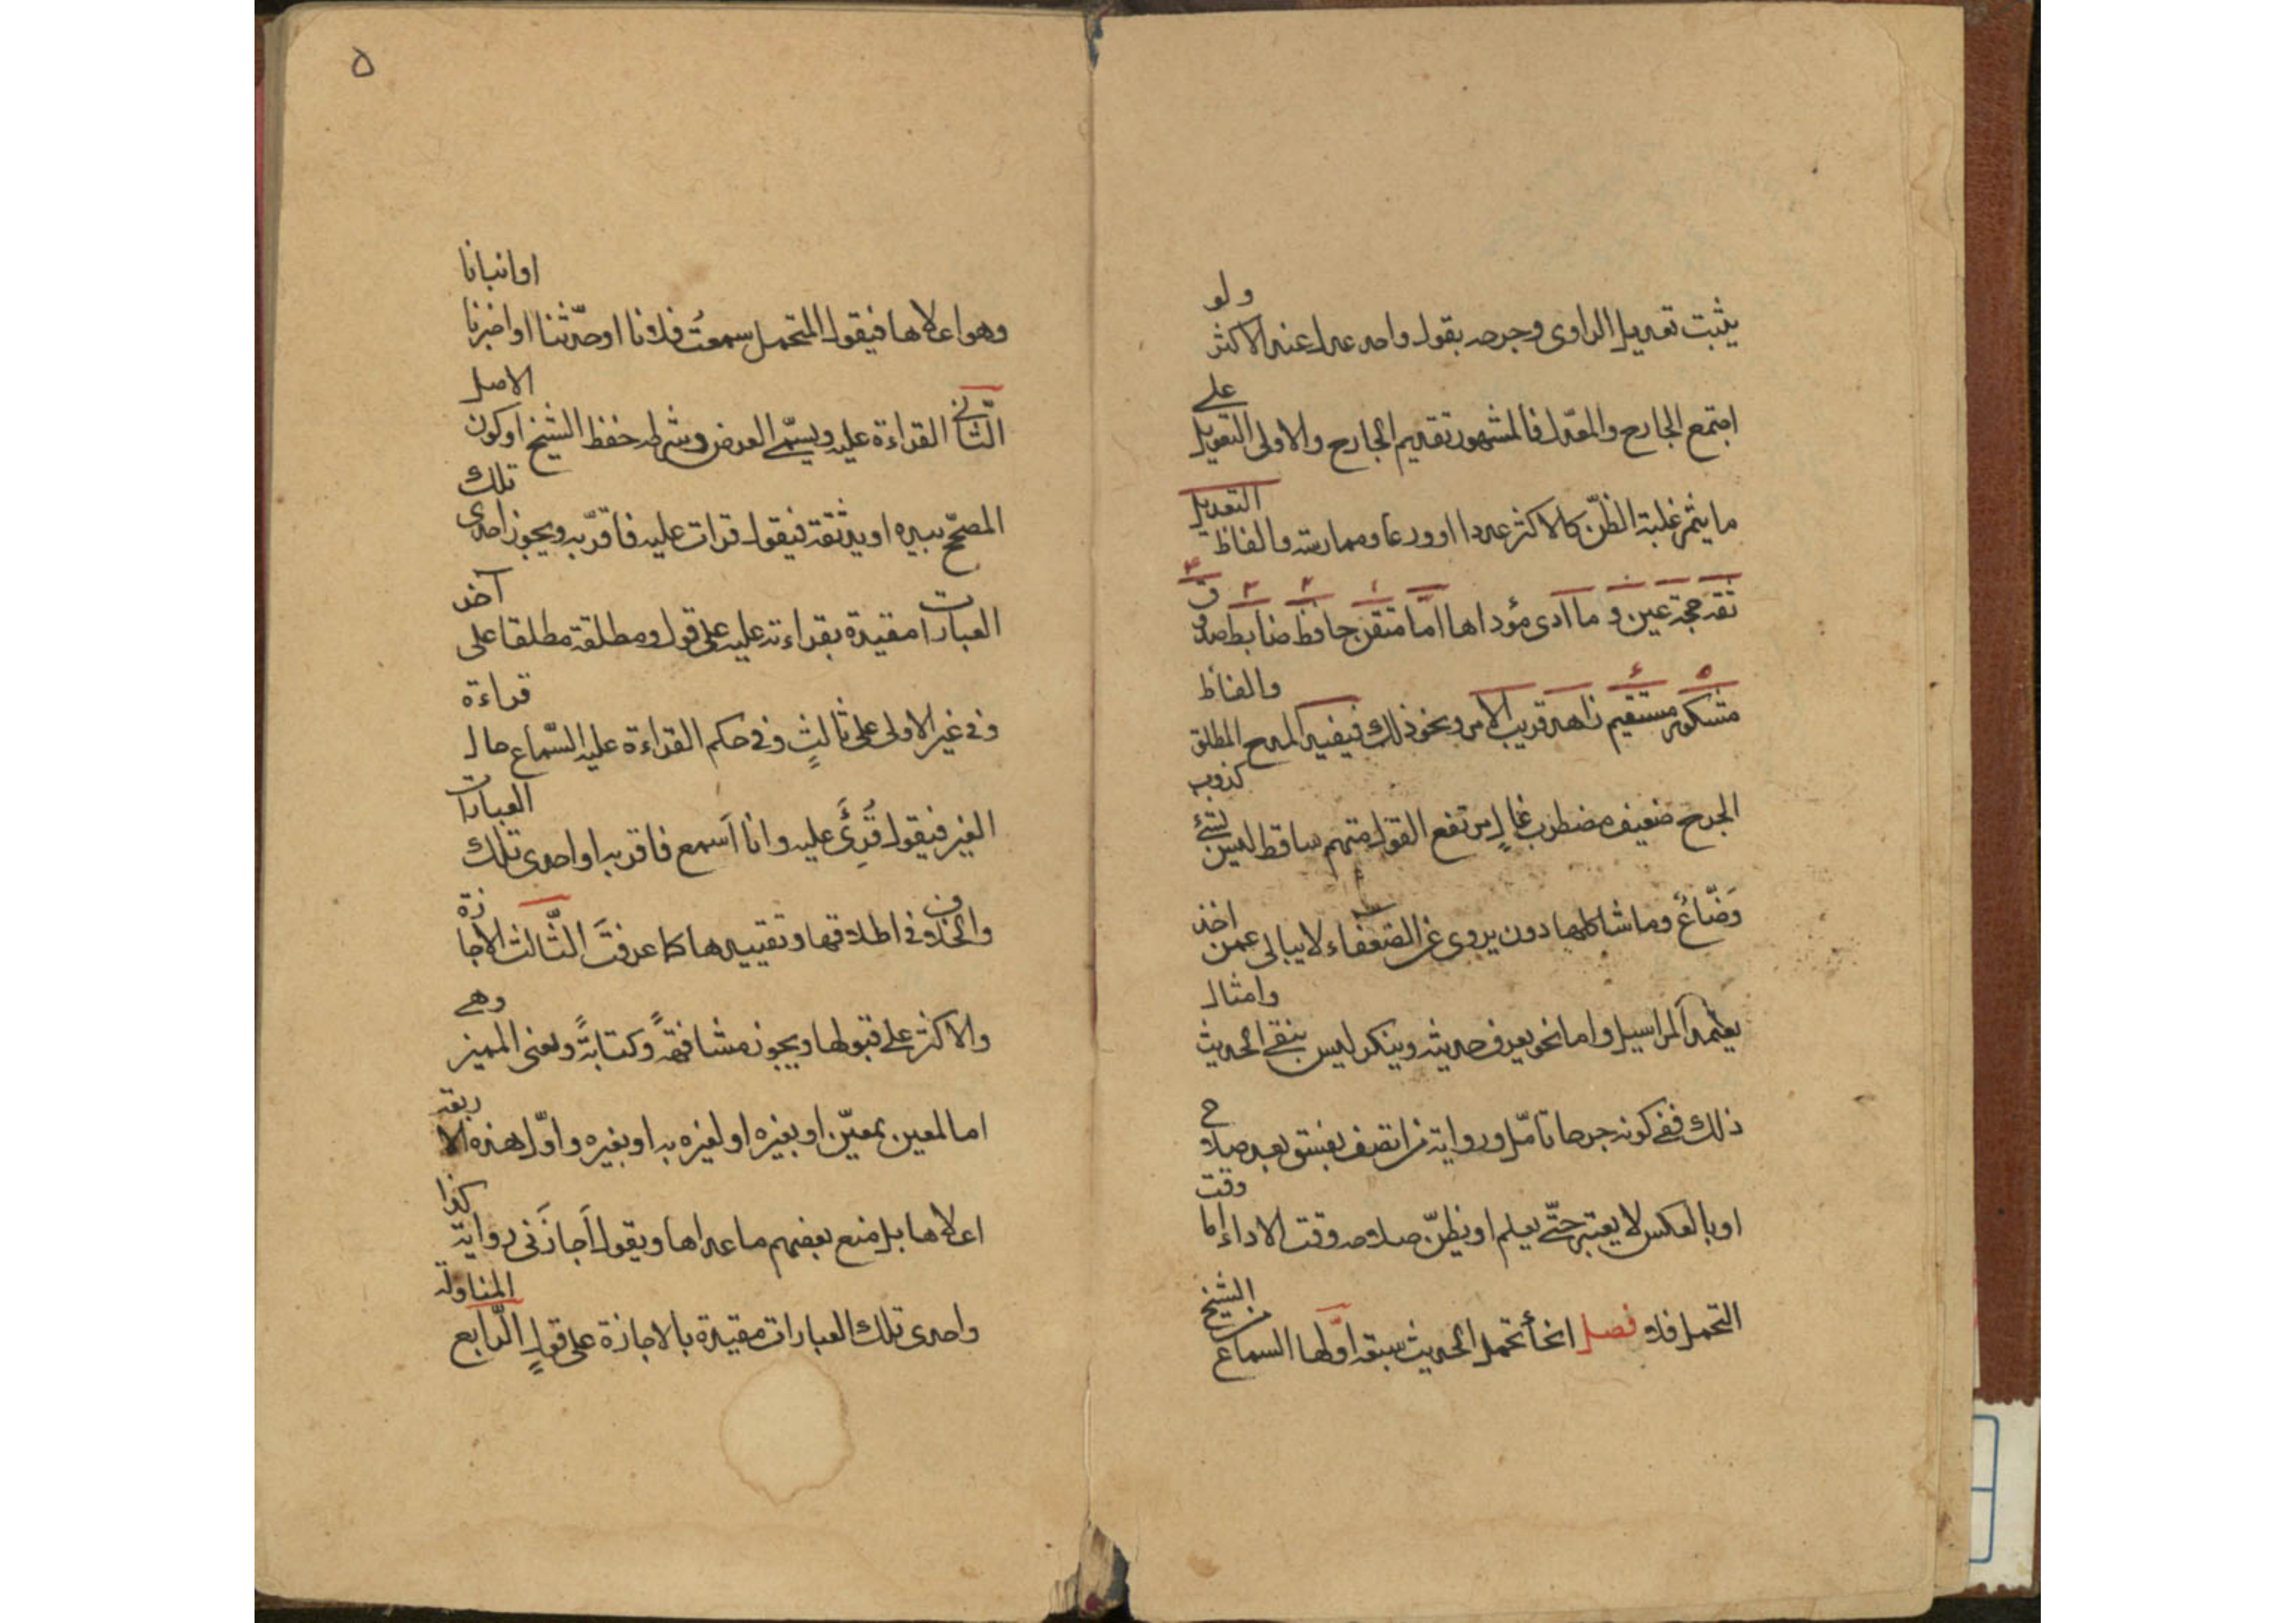 يثبت تعديل الراوى وجرحه بقول واحد عدل عند الاكثر ولو
اجتمع الجارح والمعدل فالمشهور تقديم الجارح والاولى التعويل على
ما يثمر غلبة الظنّ كالاكثر عددا او ورعا وممارسة والفاظ التعديل
ثقة حجة عين وما ادى مؤداها امّا متقن حافظ ضابط صدوق
مشكور مستقيم زاهد قريب الامر ونحو ذلك فيفيد المدح المطلق والفاظ
الجرح ضعيف مضطرب غالٍ مرتفع القول متهم ساقط ليس بشئ كذوب
وَضّاعٌ وما شاكلها دون يروى عن الضعفاء لا يبالى عمن اخذ
يعتمد المراسيل واما نحو يعرف حديثه وينكر ليس بنقى الحديث وامثال
ذلك ففى كونه جرحا تامّل ورواية من اتصف بفسق بعد صلاح
او بالعكس لا يعتبر حتّى يعلم او يظنّ صلاحه وقت الاداء اما وقت
التحمل فلا فصل انحأ تحمل الحديث سبعة اوّلها السماع من الشيخ
٥
وهو اعلاها فيقول المتحمل سمعتُ فلانا او حدّثنا او اخبرنا او انبانا
الثّانى القراءة عليه ويسمّى العرض وشرطه حفظ الشيخ او كون الاصل
المصحّح بيده او يد ثقة فيقول قرات عليه فاقرّ به ويجوز احدى تلك
العبارات مقيدة بقراءته عليه على قول ومطلقة مطلقا على آخر
وفى غير الاولى على ثالثٍ وفى حكم القراءة عليه السّماع حال قراءة
الغير فيقول قُرِئَ عليه وانا اَسمع فاقر به او احدى تلك العبارات
والخلاف فى اطلاقها وتقييدها كما عرفتَ الثّالث الاجازة
والاكثر على قبولها ويجوز مشافهةً وكتابةً ولغى المميز وهى
اما لمعين بمعيّن او بغيره او لغيره به او بغيره واوّل هذه الاربعة
اعلاها بل منع بعضهم ما عداها ويقول اَجازَنى رواية كذا
واحدى تلك العبارات مقيّدة بالاجازة على قولٍ الرّابع المناولة